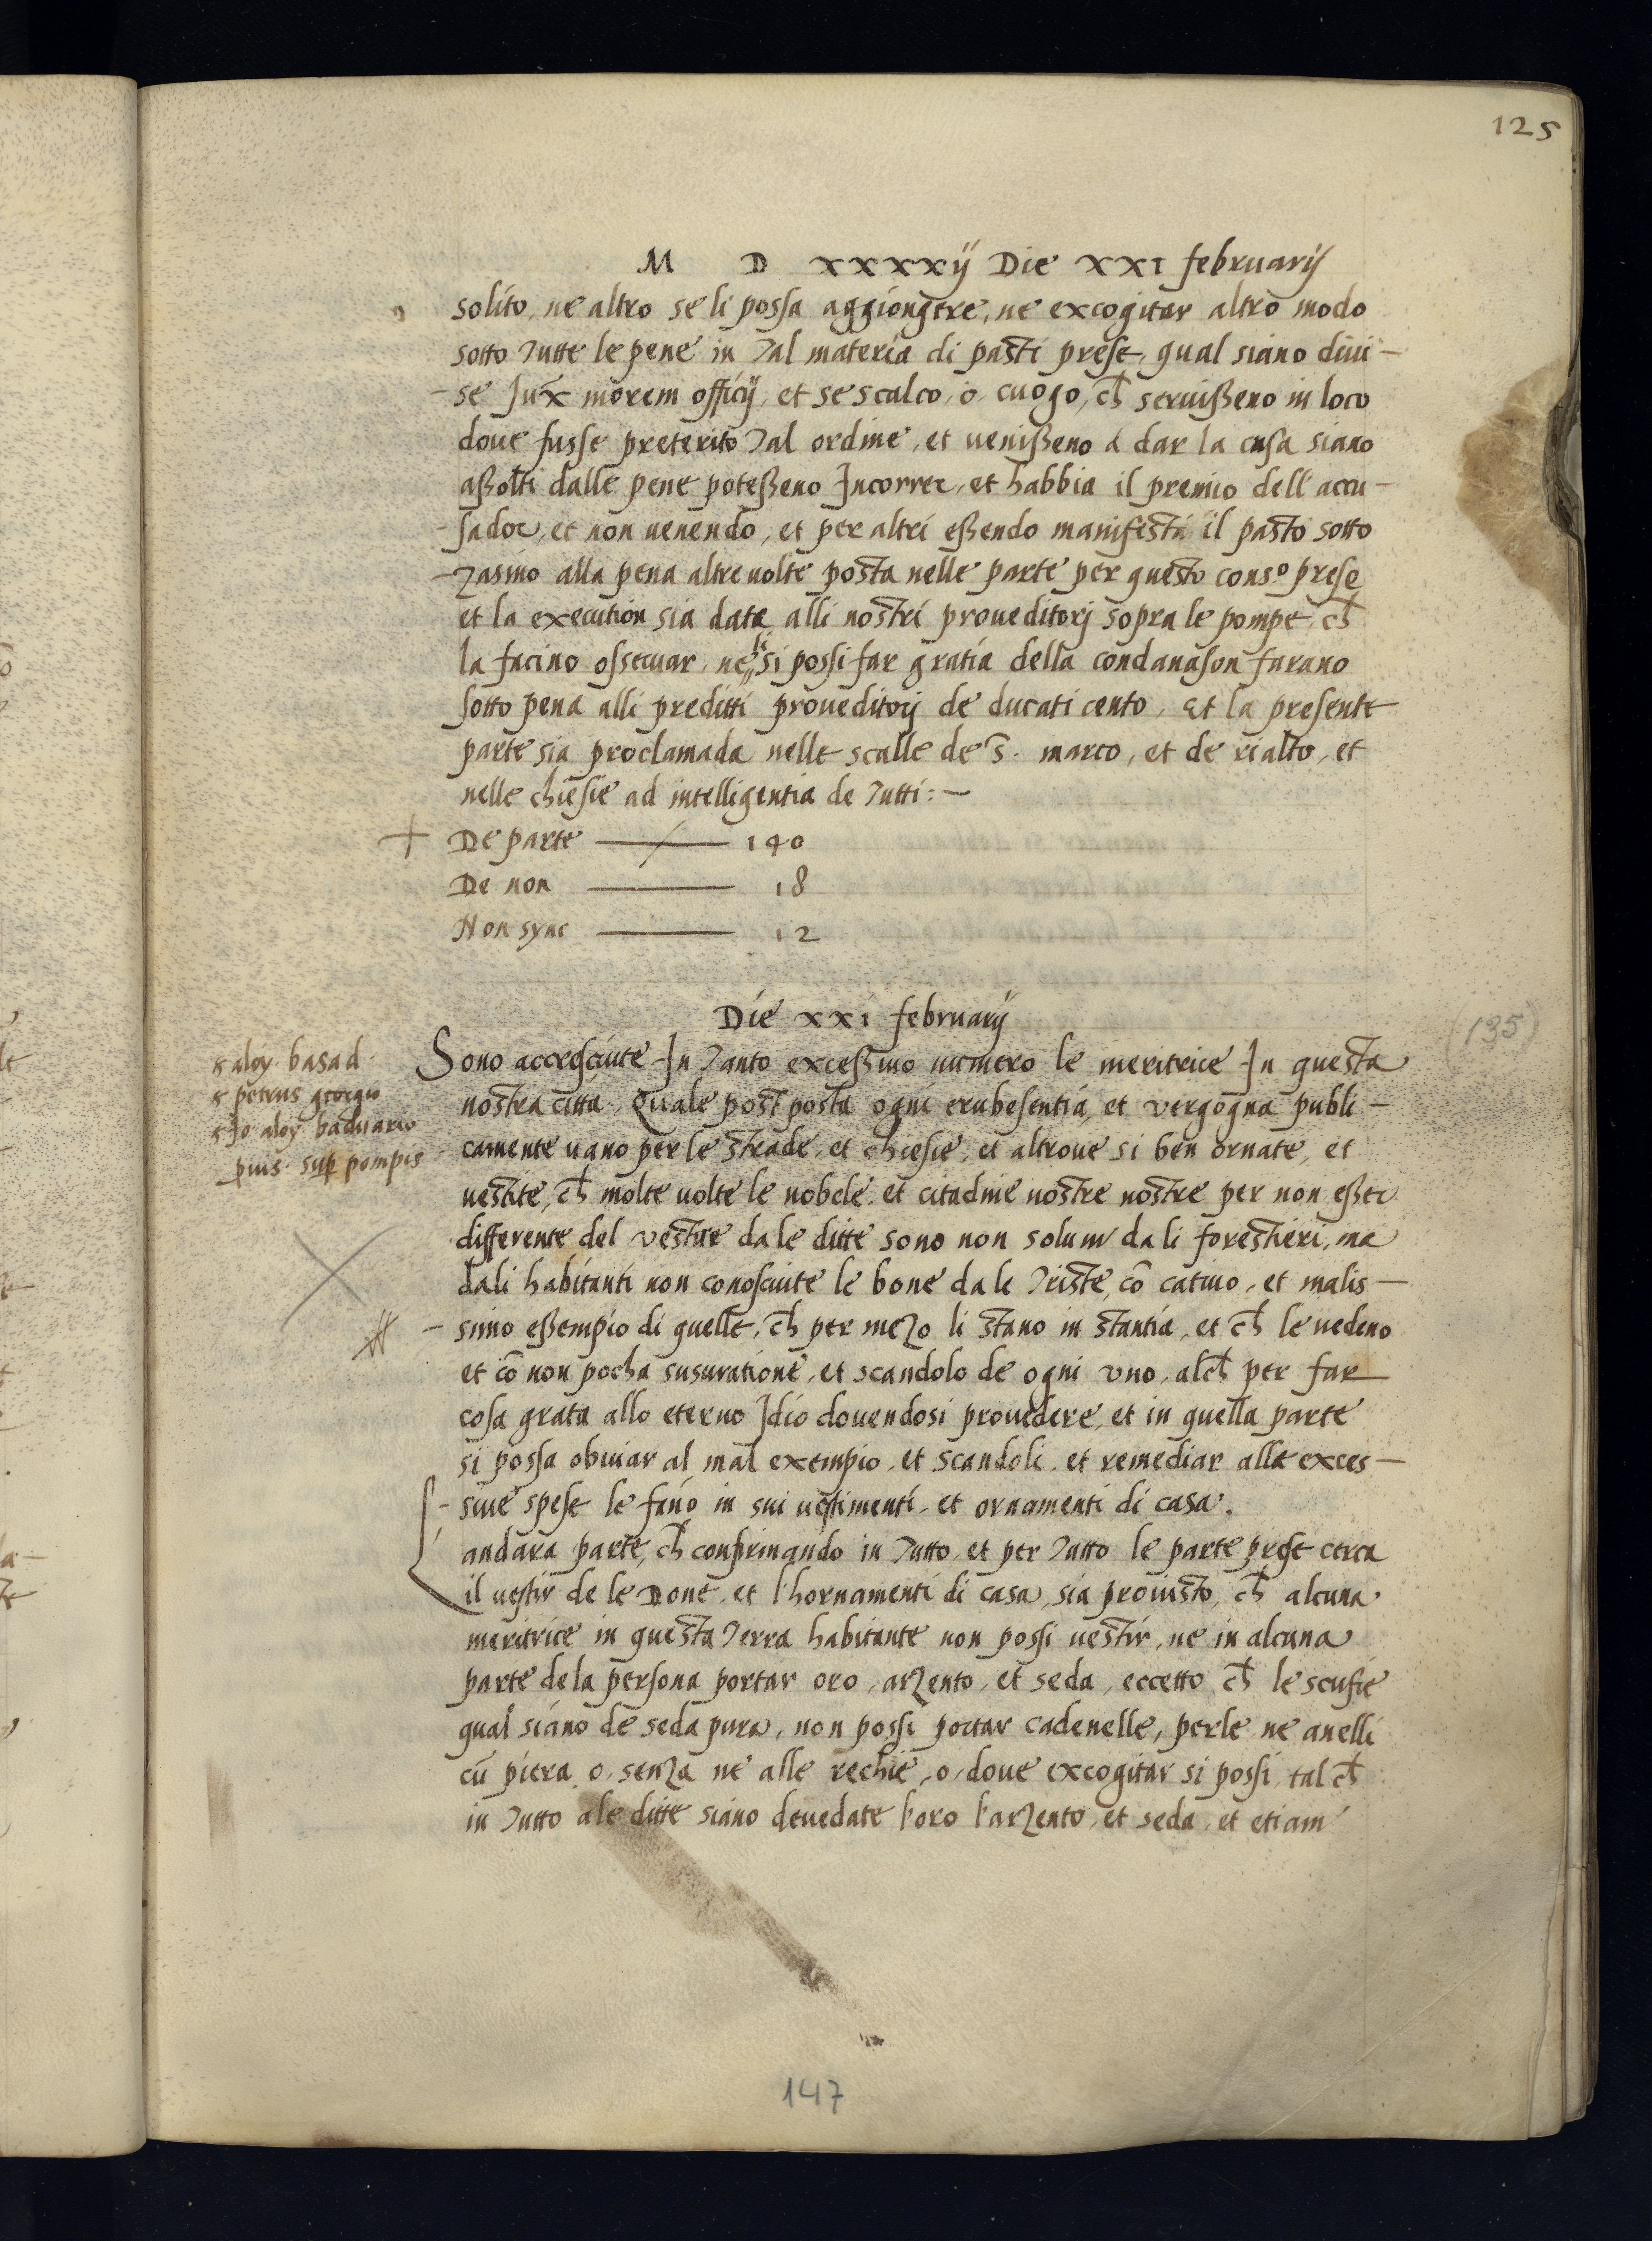 125
M D xxxxij Die xxi februarij
solito, ne altro se li possa aggiongere, ne excogitar altro modo
sotto tutte le pene in tal materia di pasti prese, qual siano diui-
-se Jux̄ morem officij, et se scalco, o, cuogo, ch̄ seruißeno in loco
doue fusse preterito tal ordine, et uenißeno à dar la cusa siano
aßolti dalle pene poteßeno Incorrer, et habbia il premio dell accu-
-sador, et non uenendo, et per altri eßendo manifestà il pasto sotto
-zasino alla pena altre uolte posta nelle parte per questo cons.o prese
et la execution sia data alli nostri proueditorj sopra le pompe, ch̄
la facino osseruar, ne li si possi far gratia della condanason farano
sotto pena alli preditti proueditorj de ducati cento, Et la presente
parte sia proclamada nelle scalle de s̄. marco, et de rialto, et
nelle chiesie ad intelligentia de tutti:-
+ De parte — 140
De non — 18
Non sync — 12
Die xxi februarij
(135)
s aloy. basad.
s petrus georgio
s Jo aloy baduario
puis. sup pompis
Sono accresciute In tanto exceßiuo numero le meritrice In questa
nostra citta, Quale post posta ogni erubesentia, et vergogna publi-
camente uano per le strade, et chiesie, et altroue si ben ornate, et
uestite, ch̄ molte uolte le nobele, et citadine nostre nostre per non eßer
differente del vestire da le ditte sono non solum da li forestieri, ma
dali habitanti non conosciute le bone da le triste, cō catiuo, et malis-
-simo eßempio di quelle, ch̄ per mezo li stano in stantia, et ch̄ le uedeno
et cō non pocha susuratione, et scandolo de ogni vno, alch̄ per far
cosa grata allo eterno Idio douendosi prouedere, et in quella parte
si possa obuiar al mal exempio, et scandoli, et remediar alle exces-
-siue spese le fano in sui uestimenti, et ornamenti di casa.
andara parte, ch̄ confirmando in tutto, et per tutto le parte prese cerca
il uestir de le Done, et l'hornamenti di casa, sia prouisto, ch̄ alcuna
meritrice in questa terra habitante non possi uestir, ne in alcuna
parte de la persona portar oro, arzento, et seda, eccetto ch̄ le scufie
qual siano de seda pura, non possi portar cadenelle, perle ne anelli
cū piera, o, senza ne alle rechie, o, doue excogitar si possi, tal ch̄
in tutto ale ditte siano deuedate l'oro l'arzento, et seda, et etiam
147